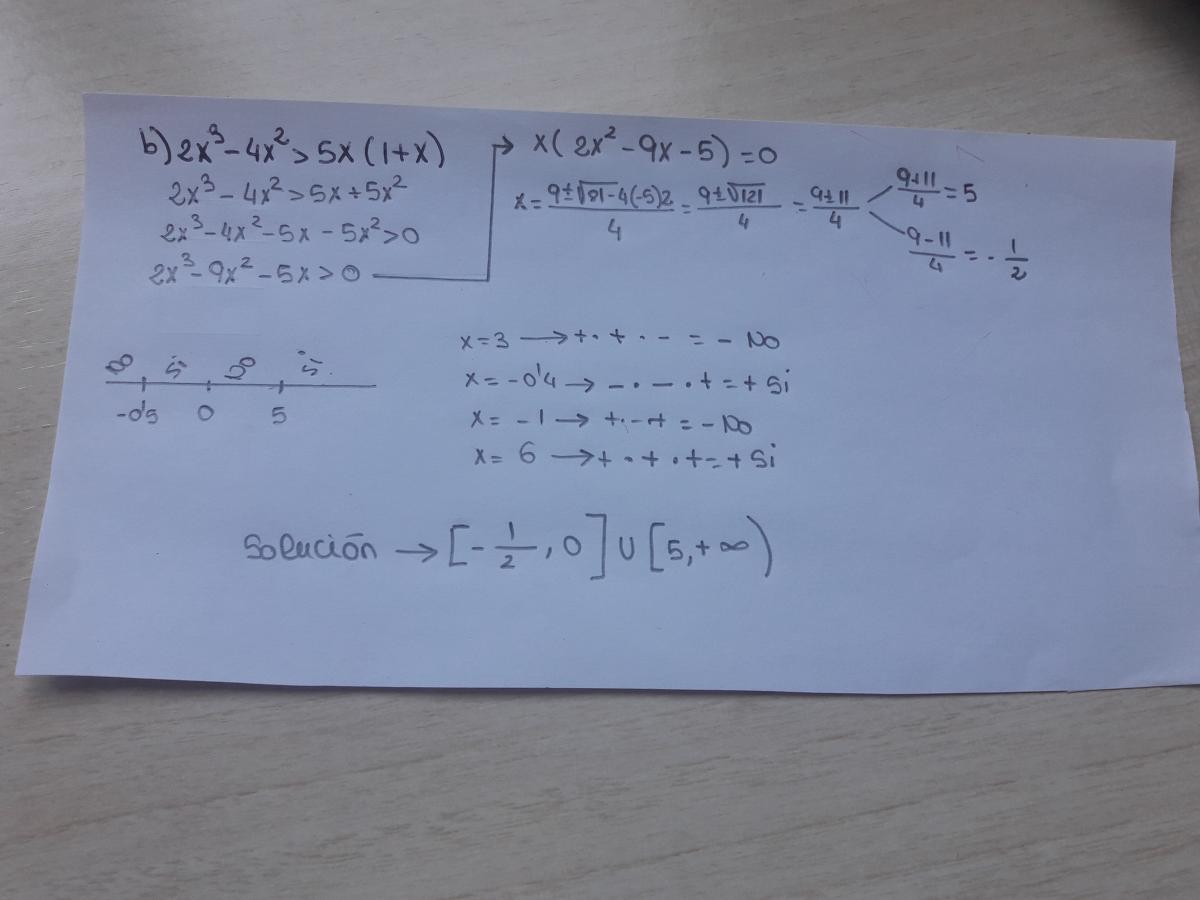 b) 2x³ - 4x² > 5x (1+x)
2x³ - 4x² > 5x + 5x²
2x³ - 4x² - 5x - 5x² > 0
2x³ - 9x² - 5x > 0
→ x ( 2x² - 9x - 5) = 0
x = (9 ± √81 - 4(-5)2)/4 = (9 ± √121)/4 = (9 ± 11)/4
(9+11)/4 = 5
(9 - 11)/4 = - 1/2
No Si No Si
-0'5 0 5
x = 3 → + · + · - = - No
x = -0'4 → - · - · + = + Si
x = -1 → + · - + = - No
x = 6 → + · + · + = + Si
Solución → [- 1/2 , 0] ∪ [5, +∞)